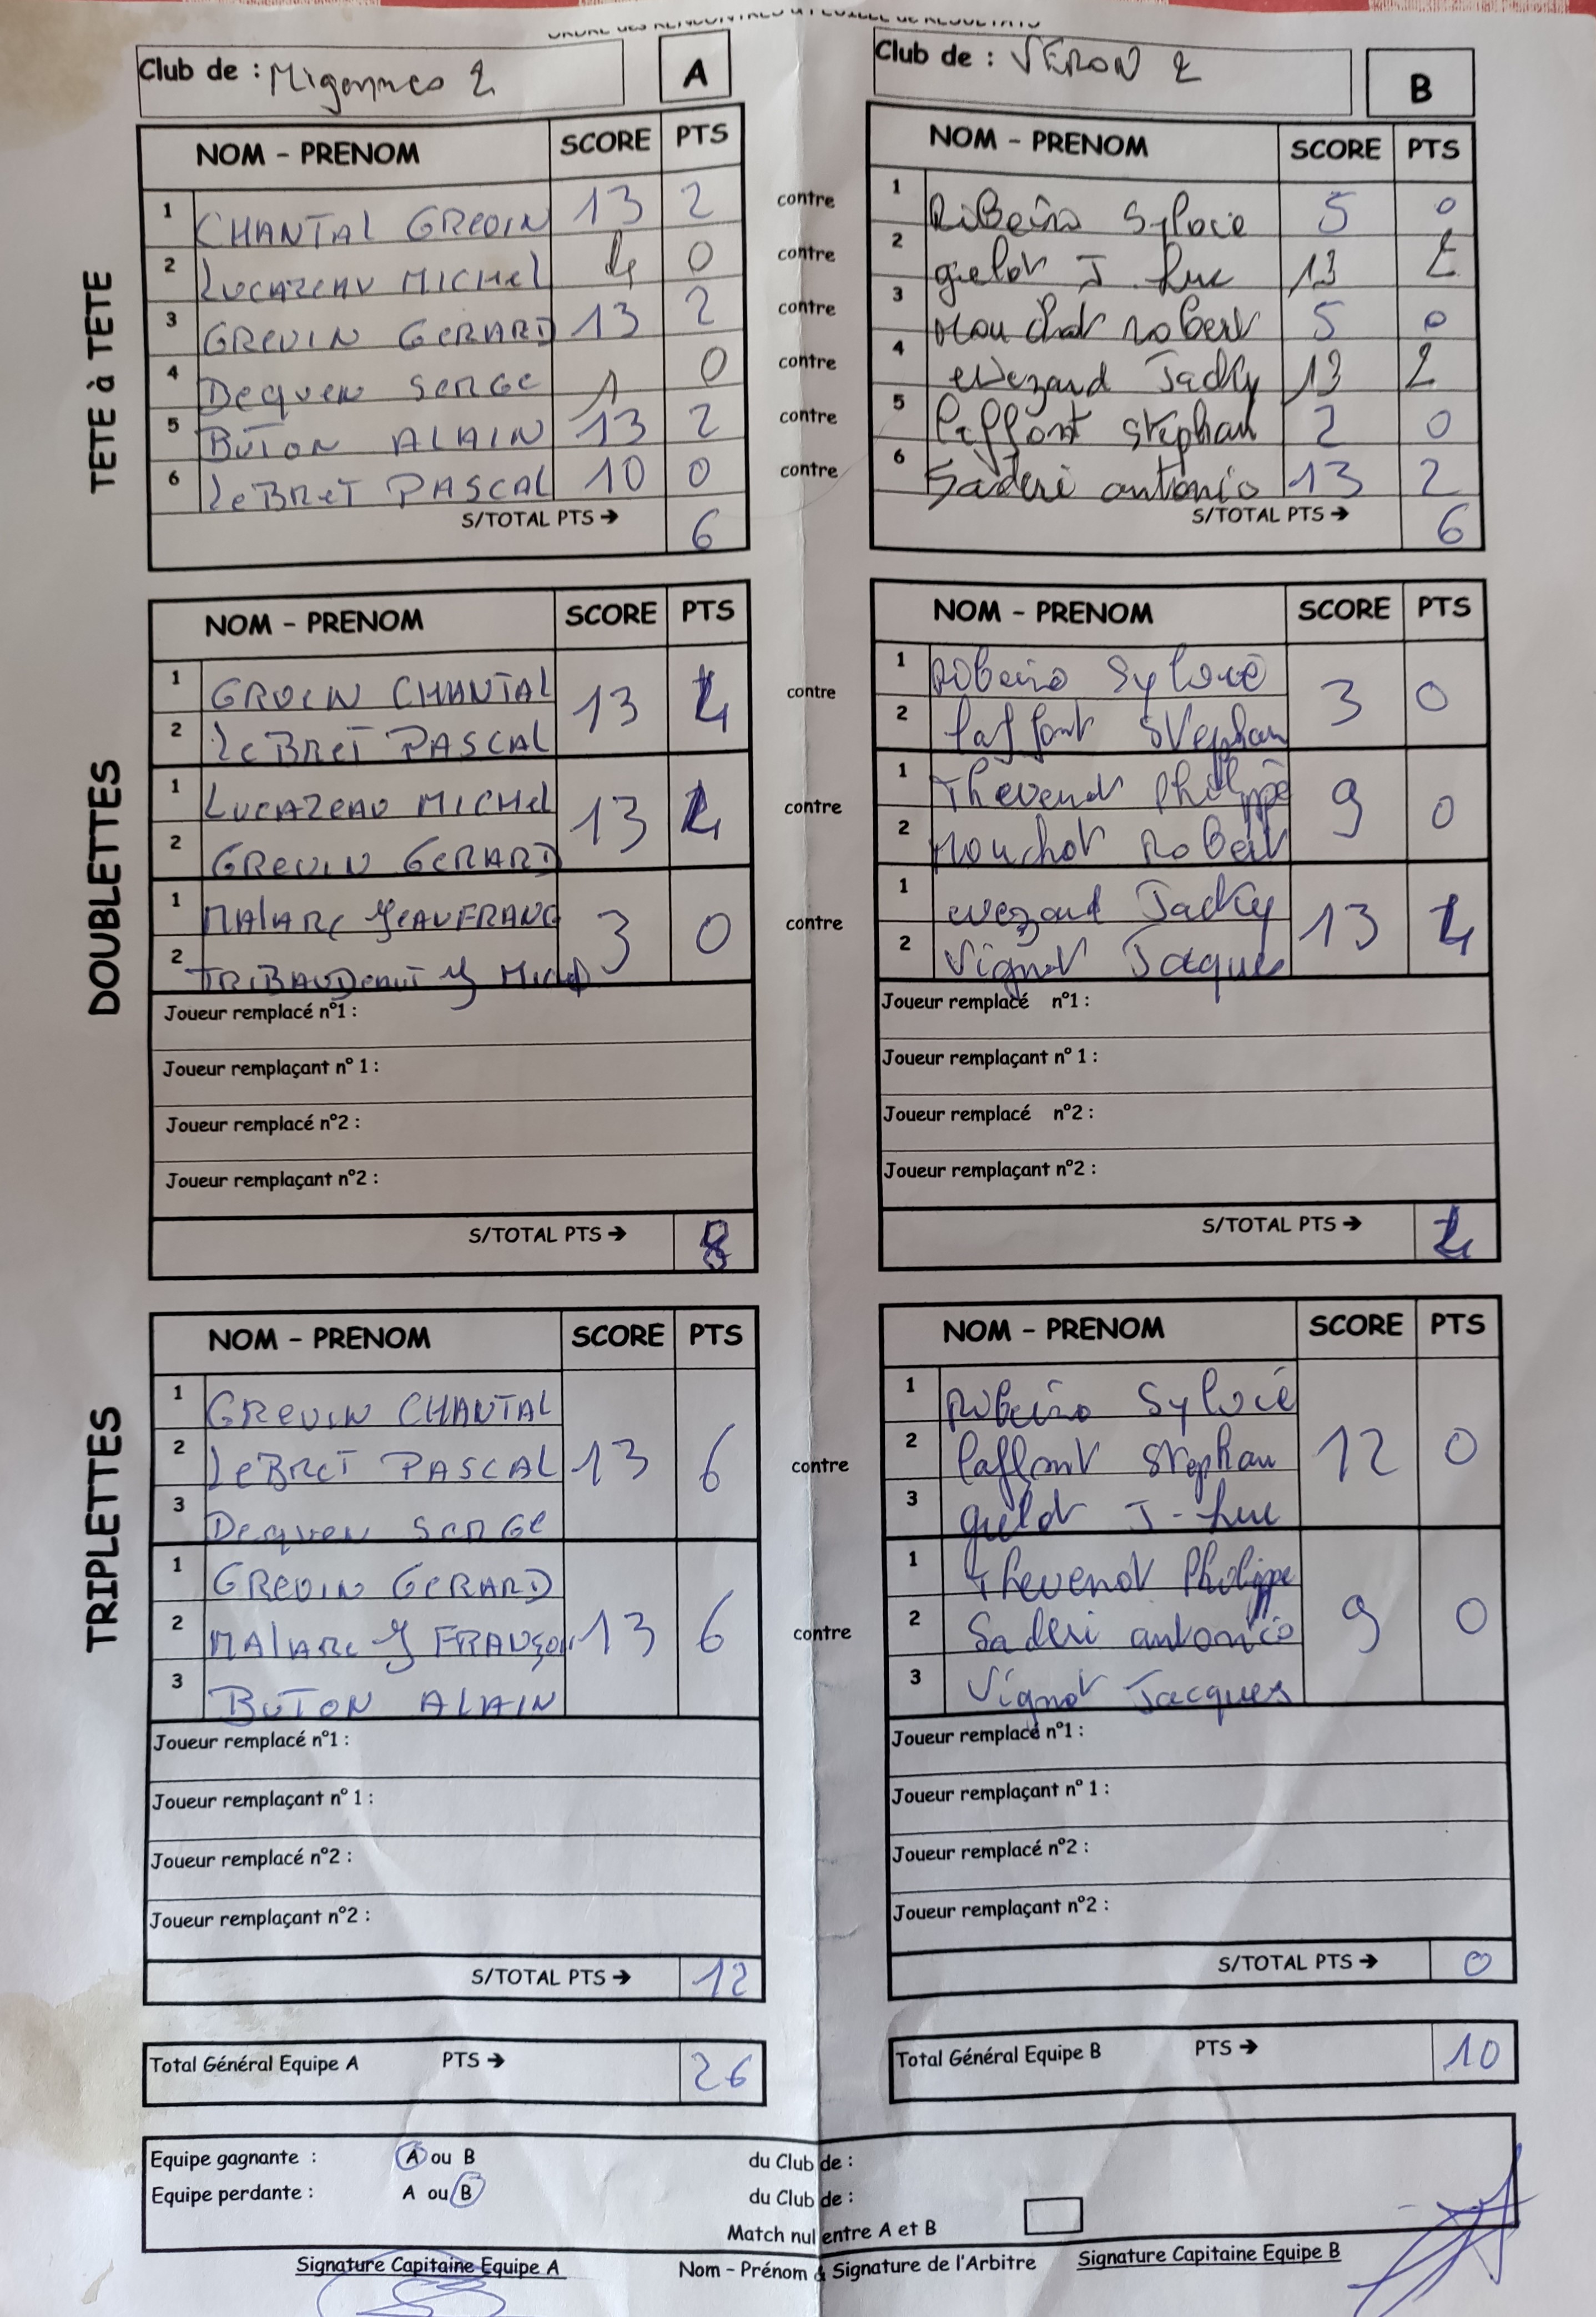 ORDRE DES RENCONTRES & FEUILLE de RESULTATS
Club de : Migennes 2
A
Club de : VERON 2
B
TETE à TETE
NOM - PRENOM SCORE PTS
NOM - PRENOM SCORE PTS
1 CHANTAL GREVIN 13 2 contre 1 Ribeiro Sylvie 5 0
2 LUCAZEAU MICHEL 4 0 contre 2 guelot J. Luc 13 2
3 GREVIN GERARD 13 2 contre 3 Mouchot Robert 5 0
4 DEQUEN SERGE 1 0 contre 4 evezard Jacky 13 2
5 BUTON ALAIN 13 2 contre 5 laffont stephan 2 0
6 LeBRET PASCAL 10 0 contre 6 Saderi antonio 13 2
S/TOTAL PTS → 6
S/TOTAL PTS → 6
DOUBLETTES
NOM - PRENOM SCORE PTS
NOM - PRENOM SCORE PTS
1 GREVIN CHANTAL 13 4 contre 1 Ribeiro Sylvie 3 0
2 LeBRET PASCAL 2 laffont Stephan
1 LUCAZEAU MICHEL 13 4 contre 1 Thevenot Philippe 9 0
2 GREVIN GERARD 2 Mouchot Robert
1 MALARC JEAN FRANC 3 0 contre 1 evezard Jacky 13 4
2 2 Vignot Jacques
Joueur remplacé n°1 :
Joueur remplacé n°1 :
Joueur remplaçant n° 1 :
Joueur remplaçant n° 1 :
Joueur remplacé n°2 :
Joueur remplacé n°2 :
Joueur remplaçant n°2 :
Joueur remplaçant n°2 :
S/TOTAL PTS → 8
S/TOTAL PTS → 4
TRIPLETTES
NOM - PRENOM SCORE PTS
NOM - PRENOM SCORE PTS
1 GREVIN CHANTAL 1 Ribeiro Sylvie
2 LeBRET PASCAL 13 6 contre 2 laffont Stephan 12 0
3 Dequen SERGE 3 guelot J-Luc
1 GREVIN GERARD 1 Thevenot Philippe
2 MALARC J FRANÇOIS 13 6 contre 2 Saderi antonio 9 0
3 BUTON ALAIN 3 Vignot Jacques
Joueur remplacé n°1 :
Joueur remplacé n°1 :
Joueur remplaçant n° 1 :
Joueur remplaçant n° 1 :
Joueur remplacé n°2 :
Joueur remplacé n°2 :
Joueur remplaçant n°2 :
Joueur remplaçant n°2 :
S/TOTAL PTS → 12
S/TOTAL PTS → 0
Total Général Equipe A PTS → 26
Total Général Equipe B PTS → 10
Equipe gagnante : A ou B du Club de :
Equipe perdante : A ou B du Club de :
Match nul entre A et B
Signature Capitaine Equipe A Nom - Prénom & Signature de l'Arbitre Signature Capitaine Equipe B